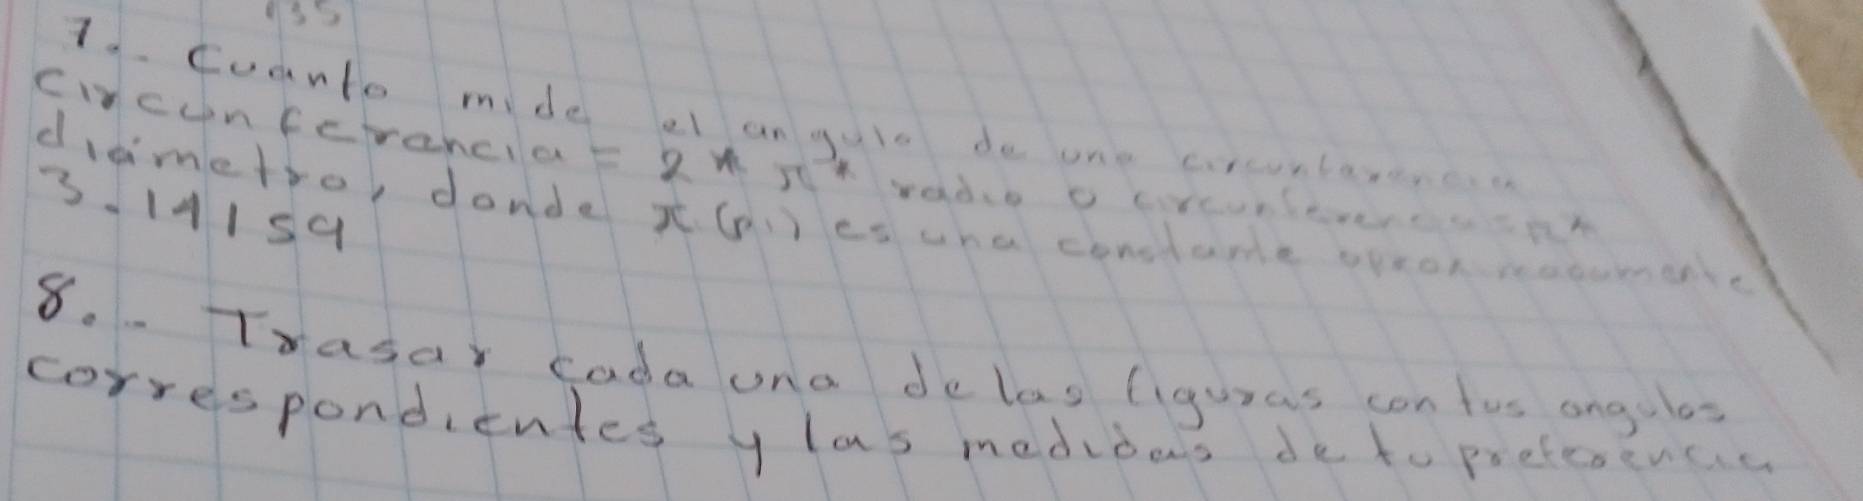 135
7.- Cuanto mide el angulo de una circunferencia
Circunferencia = 2 * π * radio o circunferencia = π *
diámetro, donde π (pi) es una constante aproximadamente
3.14159
8.- Trasar cada una de las figuras con tus angulos
correspondientes y las medidas de tu preferencia